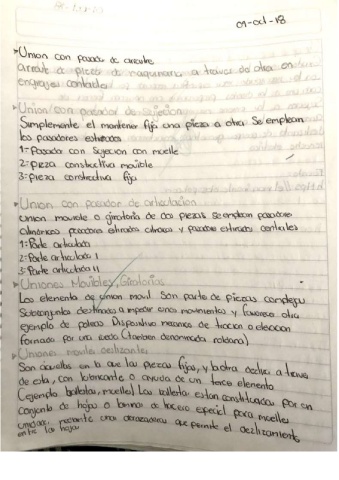 01-oct-18
Union con pasador de arrastre
arrastre a piezas de maquinaria a traves de otra en
engrajes contables
Union con pasador de sujeción
Simplemente el mantener fija una pieza a otra Se emplean
los pasadores estriados
1- Pasador con Sujecion con muelle
2- pieza constructiva movible
3- pieza constructiva fija
Union con pasador de articulacion
union movible o giratoria de dos piezas se emplean pasadores
cilindricos pasadores estriados cilindricos y pasadores estriados centrales
1- Parte articulada
2- Parte articulada 1
3- Parte articulada 11
Uniones Movibles, Giratorias
Los elementos de union movil Son parte de piezas complejas
Subconjuntos destinados a impedir cinco movimientos y favorecer otro
ejemplo de poleas. Dispositivo mecanico de traccion o elevacion
formado por una rueda (tambien denominada roldana)
Uniones moviles deslizantes
Son aquellos en la que las piezas fijas, y la otra desliza a traves
de esta, con lubricante o ayuda de un tercer elemento
(ejemplo ballestas, muelles) Las ballestas estan constituidas por un
conjunto de hojas o laminas de acero especial para muelles
unidas mediante unas abrazaderas que permite el deslizamiento
entre las hojas